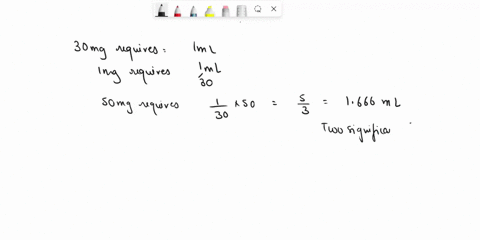 30mg requires : 1mL
1mg requires 1mL/30
50mg requires 1/30 × 50 = 5/3 = 1.666 mL
Two significa